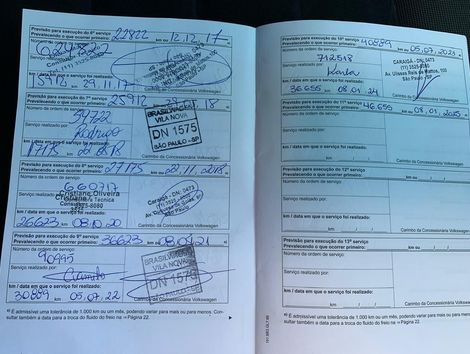 Previsão para execução do 6º serviço 22822 km ou 12.12.17
Prevalecendo o que ocorrer primeiro:
Número da ordem de serviço:
Serviço realizado por:
(11) 3525-8080
km / data em que o serviço foi realizado:
15912 km 29.11.17
Carimbo da Concessionária Volkswagen
Previsão para execução do 7º serviço 25912
Prevalecendo o que ocorrer primeiro:
Número da ordem de serviço:
54722
BRASILWAGEN
VILA NOVA
DN 1575
SÃO PAULO - SP
Serviço realizado por:
Rodrigo
km / data em que o serviço foi realizado:
17175 km
Carimbo da Concessionária Volkswagen
Previsão para execução do 8º serviço 27175 km ou 22.11.2018
Prevalecendo o que ocorrer primeiro:
Número da ordem de serviço:
660717
CARAIGÁ - DN. 0473
(11) 3525-8080
São Paulo
Serviço realizado por:
Cristiane Oliveira
Consultora Técnica
km / data em que o serviço foi realizado:
26623 km 08.10.20
Carimbo da Concessionária Volkswagen
Previsão para execução do 9º serviço 36623 km ou 08.10.21
Prevalecendo o que ocorrer primeiro:
Número da ordem de serviço:
90995
BRASILWAGEN
VILA NOVA
DN 1575
Serviço realizado por:
Camila
km / data em que o serviço foi realizado:
30889 km 05.07.22
Carimbo da Concessionária Volkswagen
a) É admissível uma tolerância de 1.000 km ou um mês, podendo variar para mais ou para menos. Con-
sultar também a data para a troca do fluido do freio na ⇒ Página 22.
Previsão para execução do 10º serviço 40889 km ou 05.07.2023
Prevalecendo o que ocorrer primeiro:
Número da ordem de serviço:
712518
CARAIGÁ - DN. 0473
(11) 3525-8080
Av. Ulisses Reis de Mattos, 100
São Paulo - SP
Serviço realizado por:
Karla
km / data em que o serviço foi realizado:
36.655 km 08.01.24
Carimbo da Concessionária Volkswagen
Previsão para execução do 11º serviço 46.655 km ou 08.01.2025
Prevalecendo o que ocorrer primeiro:
Número da ordem de serviço:
Serviço realizado por:
km / data em que o serviço foi realizado:
km
Carimbo da Concessionária Volkswagen
Previsão para execução do 12º serviço
Prevalecendo o que ocorrer primeiro:
km ou
Número da ordem de serviço:
Serviço realizado por:
km / data em que o serviço foi realizado:
km
Carimbo da Concessionária Volkswagen
Previsão para execução do 13º serviço
Prevalecendo o que ocorrer primeiro:
km ou
Número da ordem de serviço:
Serviço realizado por:
km / data em que o serviço foi realizado:
km
Carimbo da Concessionária Volkswagen
a) É admissível uma tolerância de 1.000 km ou um mês, podendo variar para mais ou para menos. Con-
sultar também a data para a troca do fluido do freio na ⇒ Página 22.